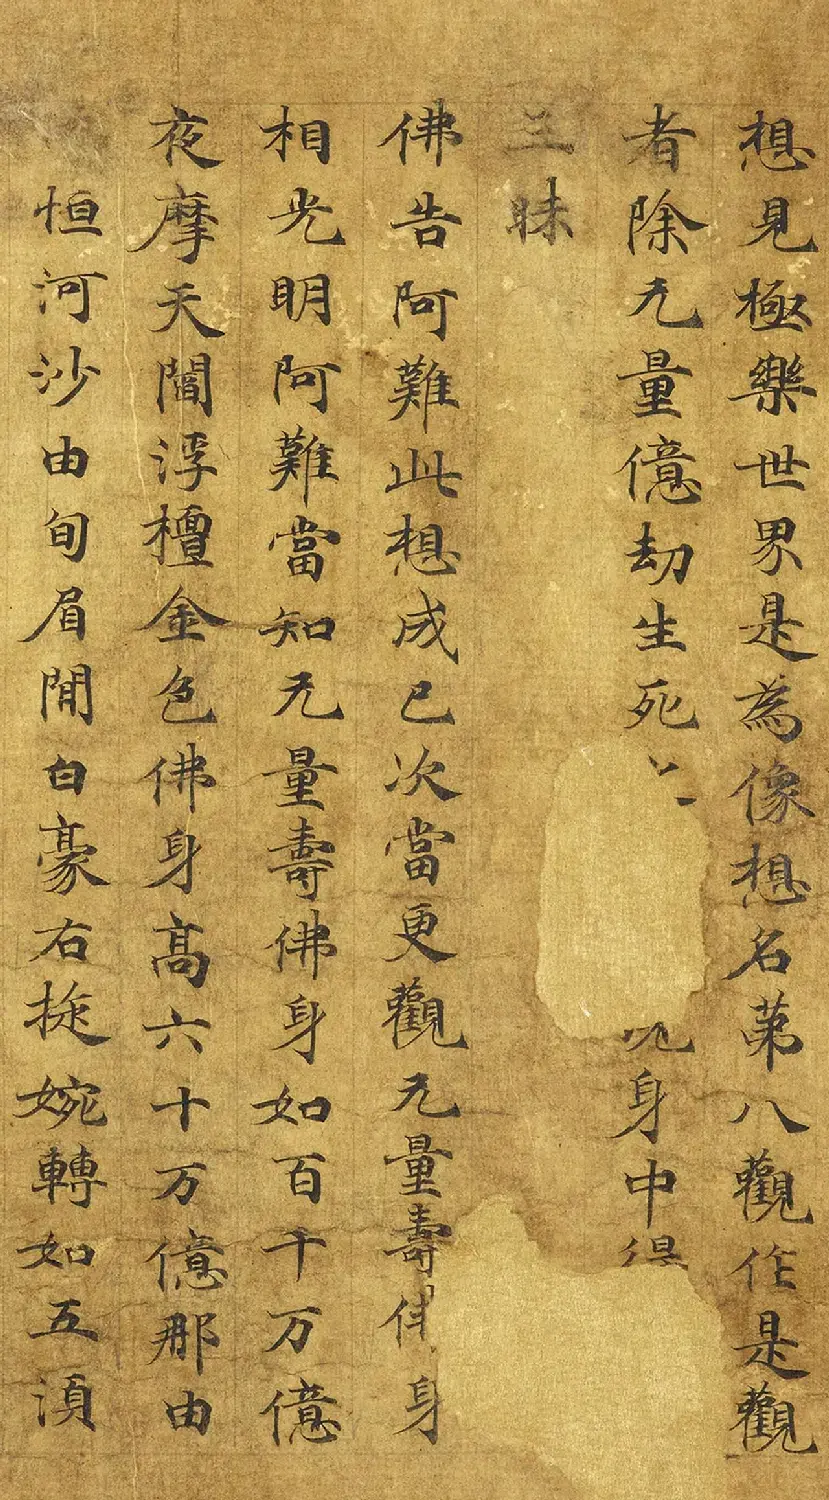 想見極樂世界是為像想名第八觀作是觀
者除无量億劫生死身中得
三昧
佛告阿難此想成已次當更觀无量壽佛身
相光明阿難當知无量壽佛身如百千万億
夜摩天閻浮檀金色佛身高六十万億那由
恒河沙由旬眉閒白豪右旋婉轉如五湏